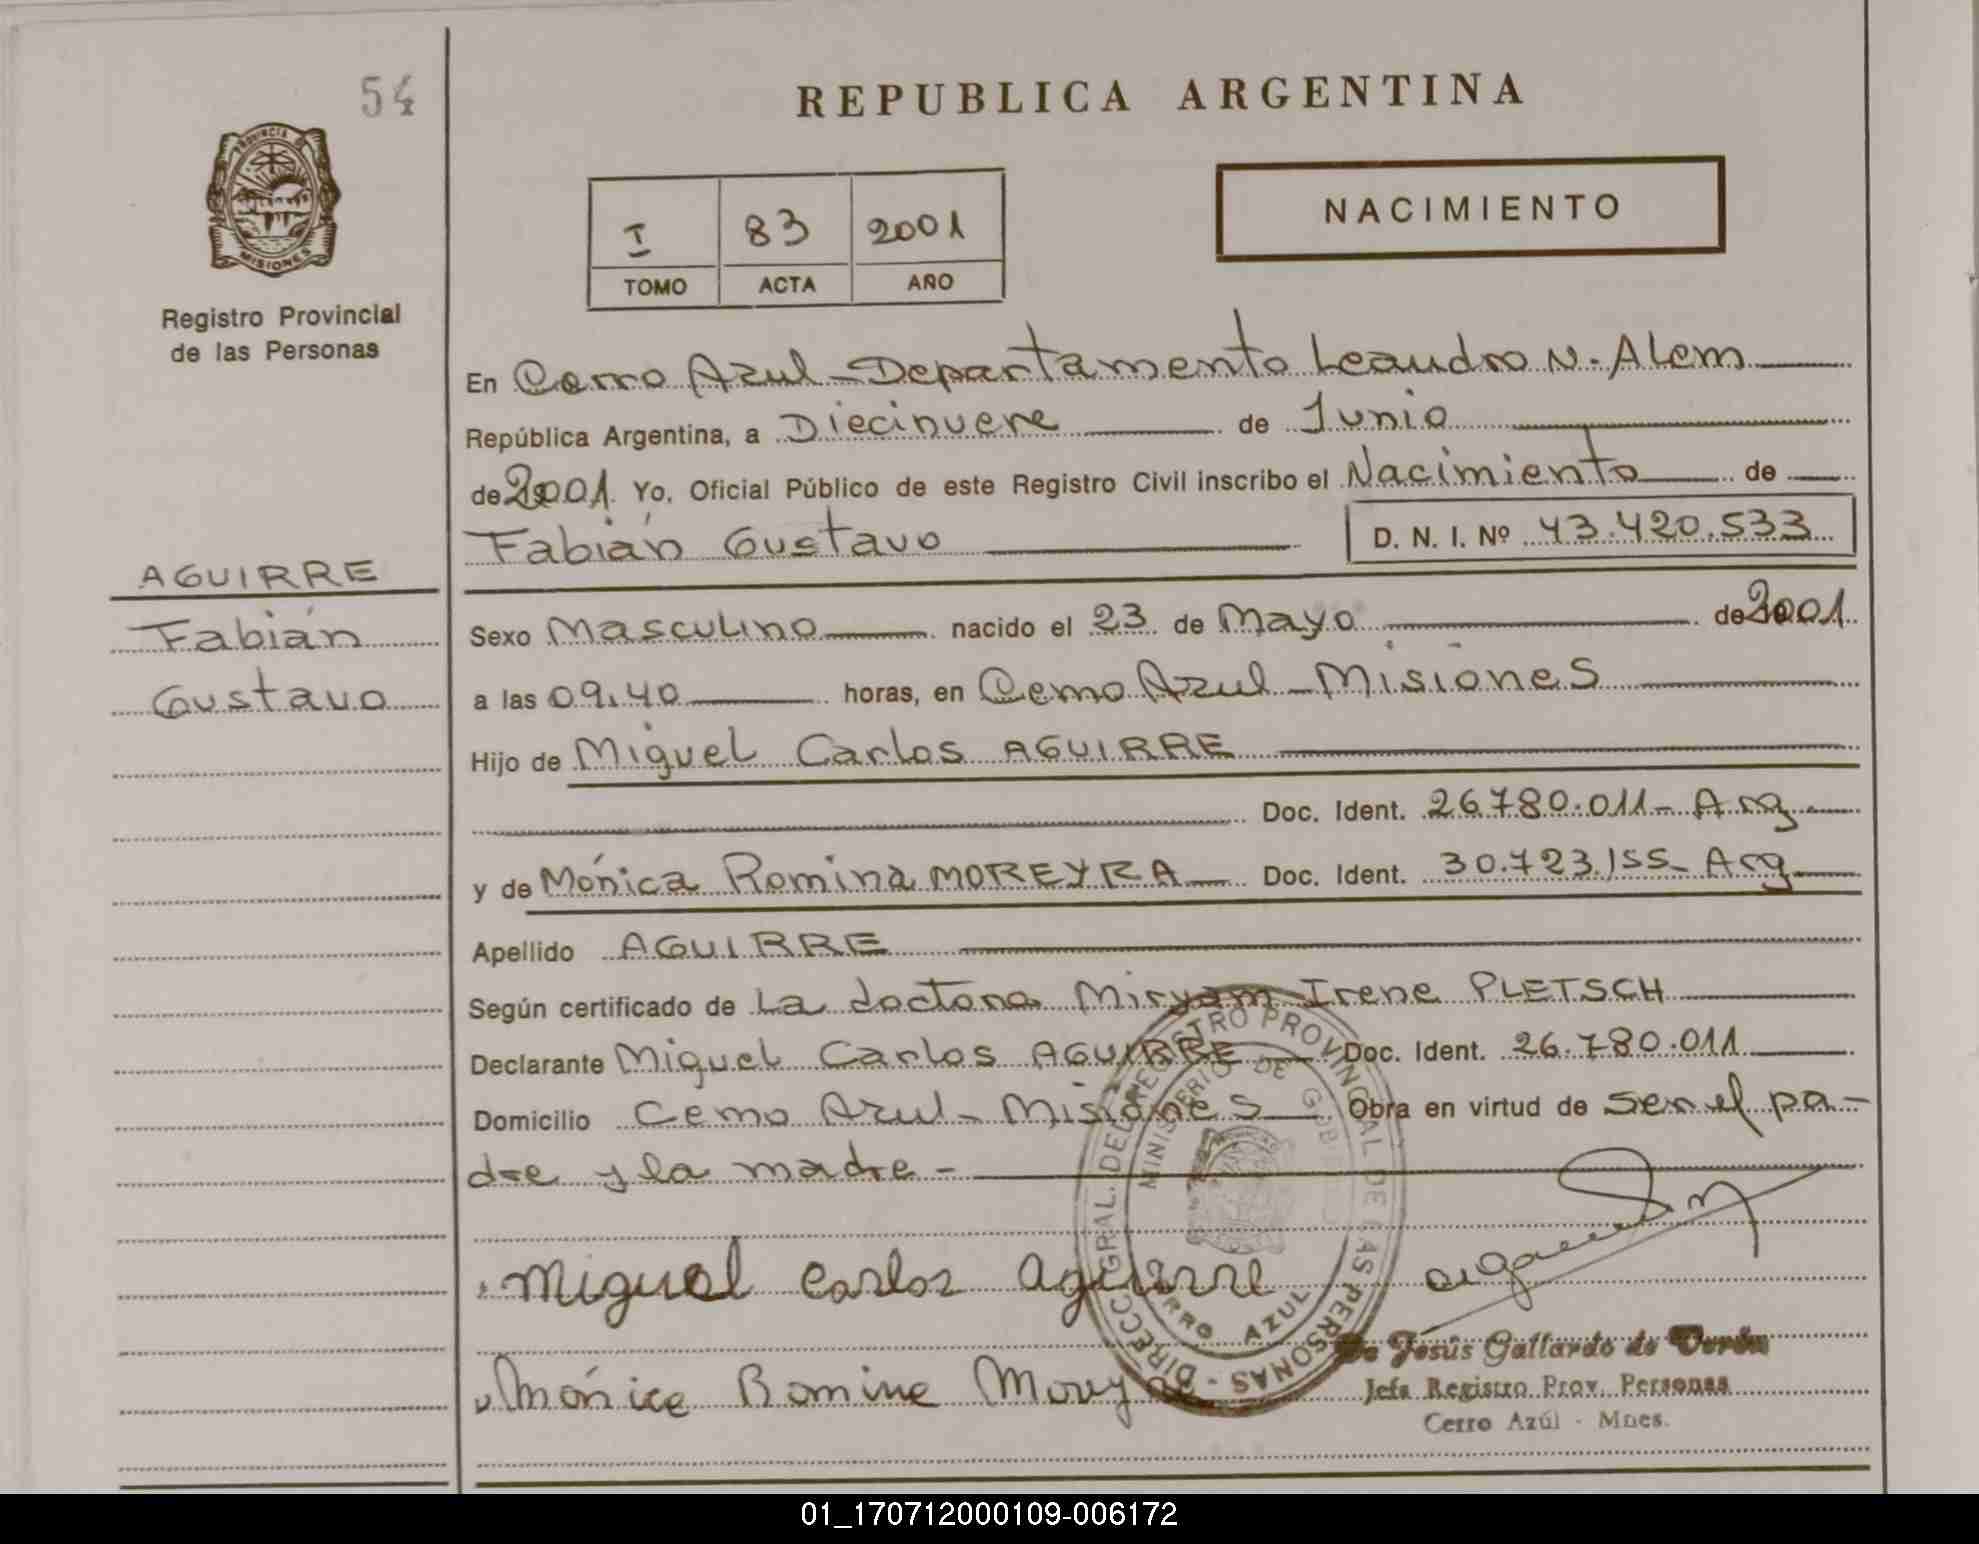 54
REPUBLICA ARGENTINA
PROVINCIA DE
MISIONES
Registro Provincial
de las Personas
I 83 2001
TOMO ACTA AÑO
NACIMIENTO
En Cerro Azul - Departamento Leandro N. Alem
República Argentina, a Diecinueve de Junio
de 2001. Yo, Oficial Público de este Registro Civil inscribo el Nacimiento de
Fabián Gustavo D. N. I. Nº 43.420.533
AGUIRRE
Fabián
Gustavo
Sexo Masculino nacido el 23 de Mayo de 2001
a las 09.40 horas, en Cerro Azul - Misiones
Hijo de Miguel Carlos AGUIRRE
Doc. Ident. 26.780.011 - Arg
y de Mónica Romina MOREYRA Doc. Ident. 30.723.155 - Arg
Apellido AGUIRRE
Según certificado de La doctora Miryam Irene PLETSCH
Declarante Miguel Carlos AGUIRRE Doc. Ident. 26.780.011
Domicilio Cerro Azul - Misiones Obra en virtud de ser el pa-
dre y la madre -
DIRECC. GRAL. DEL REGISTRO PROVINCIAL DE LAS PERSONAS -
MINISTERIO DE
CERRO AZUL
Miguel Carlos Aguirre
Jesús Gallardo de Verón
Mónica Romina Moreyra
Jefa Registro Prov. Personas
Cerro Azúl - Mnes.
01_170712000109-006172